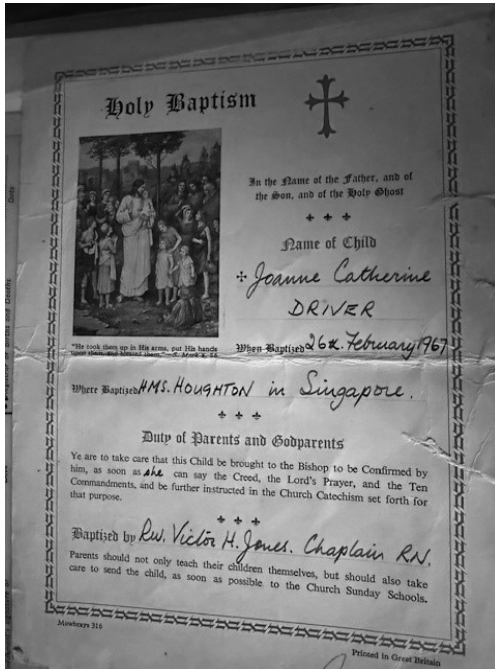 Holy Baptism
In the Name of the Father, and of
the Son, and of the Holy Ghost
Name of Child
Joanne Catherine
DRIVER
"He took them up in His arms, put His hands
upon them, and blessed them."—S. Mark x. 16
When Baptized 26th. February 1967
Where Baptized HMS. HOUGHTON in Singapore.
Duty of Parents and Godparents
Ye are to take care that this Child be brought to the Bishop to be Confirmed by
him, as soon as she can say the Creed, the Lord's Prayer, and the Ten
Commandments, and be further instructed in the Church Catechism set forth for
that purpose.
Baptized by Rev. Victor H. Jones. Chaplain RN.
Parents should not only teach their children themselves, but should also take
care to send the child, as soon as possible to the Church Sunday Schools.
Mowbrays 316
Printed in Great Britain